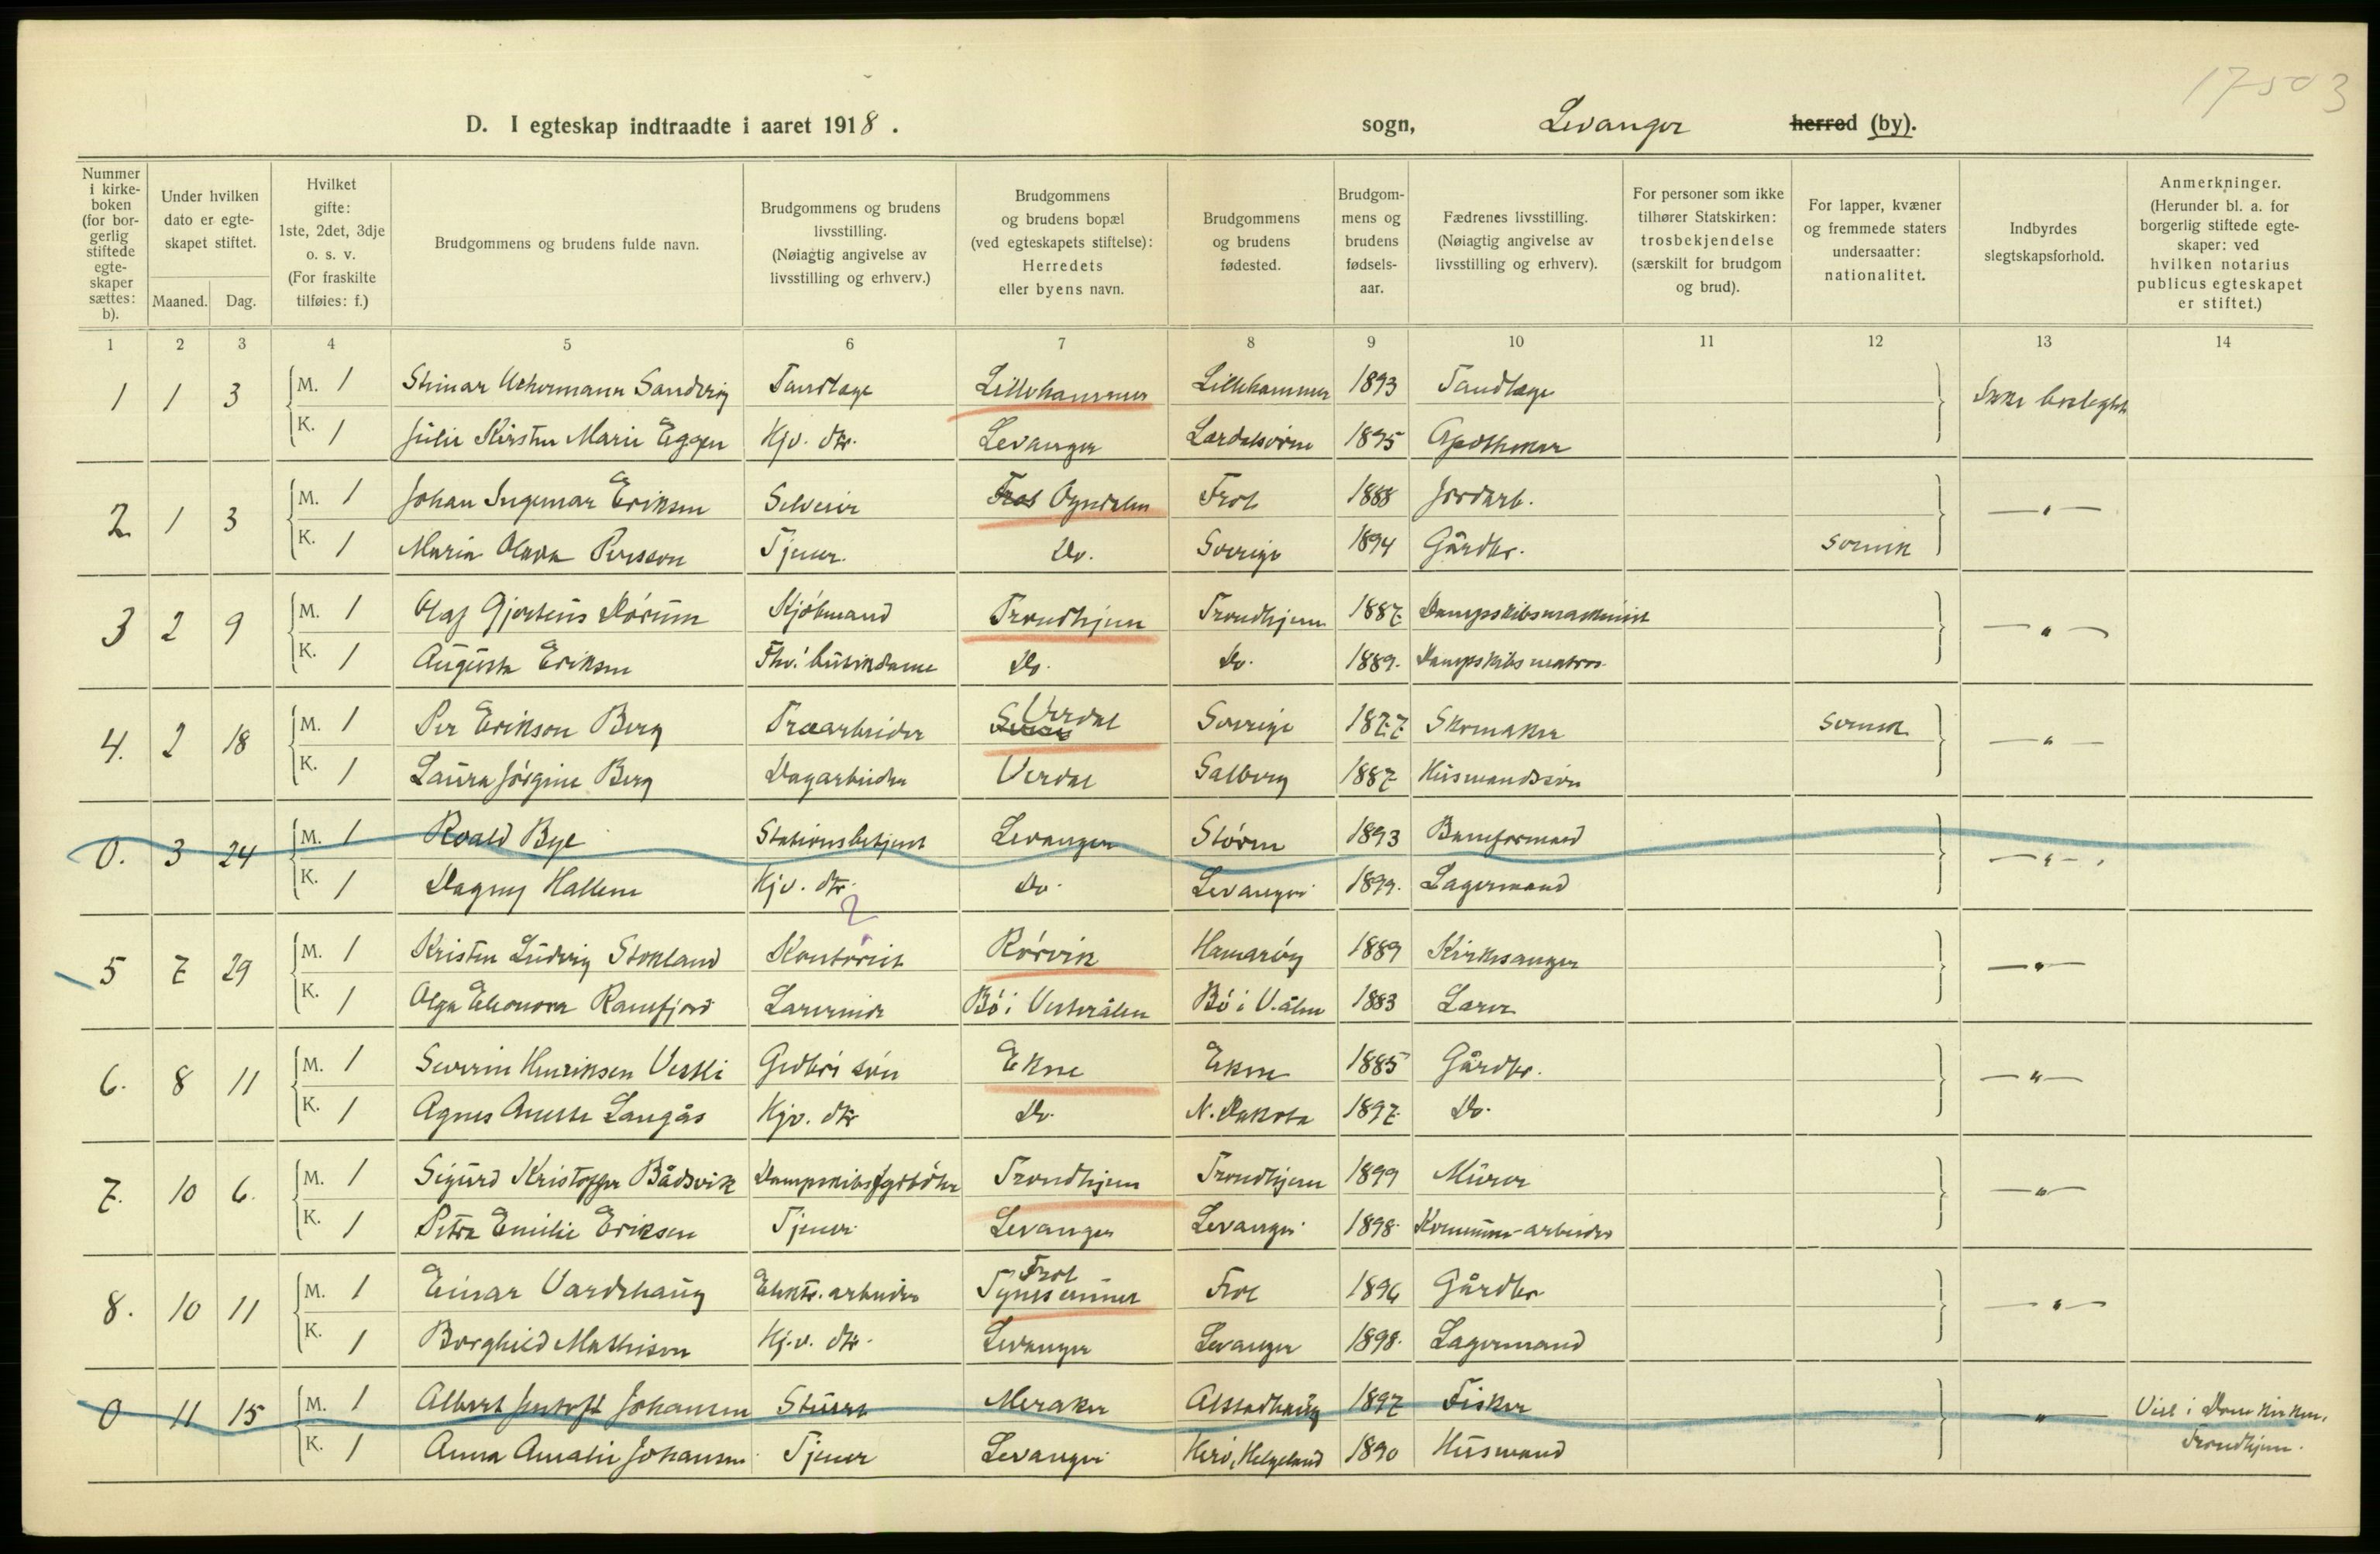 17503
D. I egteskap indtraadte i aaret 1918. sogn, Levanger herred (by).
Nummer i kirkeboken (for borgerlig stiftede egteskaper sættes: b).
Under hvilken dato er egteskapet stiftet. Maaned. Dag.
Hvilket gifte: 1ste, 2det, 3dje o. s. v. (For fraskilte tilføies: f.)
Brudgommens og brudens fulde navn.
Brudgommens og brudens livsstilling. (Nøiagtig angivelse av livsstilling og erhverv.)
Brudgommens og brudens bopæl (ved egteskapets stiftelse): Herredets eller byens navn.
Brudgommens og brudens fødested.
Brudgommens og brudens fødselsaar.
Fædrenes livsstilling. (Nøiagtig angivelse av livsstilling og erhverv).
For personer som ikke tilhører Statskirken: trosbekjendelse (særskilt for brudgom og brud).
For lapper, kvæner og fremmede staters undersaatter: nationalitet.
Indbyrdes slegtskapsforhold.
Anmerkninger. (Herunder bl. a. for borgerlig stiftede egteskaper: ved hvilken notarius publicus egteskapet er stiftet.)
1 2 3 4 5 6 7 8 9 10 11 12 13 14
1 1 3 M. 1 Steinar Uchermann Sandvig Tandlæge Lillehammer Lillehammer 1893 Tandlæge Ikke beslegtet
K. 1 Julie Kirsten Marie Eggen Hjv. dtr. Levanger Lærdalsøren 1895 Apotheker
2 1 3 M. 1 Johan Ingemar Eriksen Selveier Frol Ogndalen Frol 1888 Jordarb. — " —
K. 1 Maria Olava Persson Tjener. Do. Sverige 1894 Gårdbr. svensk
3 2 9 M. 1 Olaf Gjertsius Dørum Kjøbmand Trondhjem Trondhjem 1887 Dampskibsmaskinist — " —
K. 1 Augusta Eriksen Fhv. butikdame Do. Do. 1889. Dampskibsmatros.
4. 2 18 M. 1 Per Erikson Berg Træarbeider Verdal Sverige 1877 Skomaker svensk — " —
K. 1 Laura Jørgine Berg Dagarbeider Verdal Salberg 1887 Husmandssøn
0. 3 24 M. 1 Roald Bye Stationsbetjent Levanger Støren 1893 Baneformand — " —
K. 1 Dagny Hallem Hjv. dtr. Do. Levanger 1899. Lagermand
2
5 7 29 M. 1 Kristen Ludvig Stokland Kontorist Rørvik Hamarøy 1889 Kirkesanger — " —
K. 1 Olga Eleonora Ramfjord Lærerinde Bø i Vesterålen Bø i V.ålen 1883 Lærer
6. 8 11 M. 1 Severin Henriksen Veske Grdbr's søn Ekne Ekne 1885 Gårdbr. — " —
K. 1 Agnes Anette Langås Hjv. dtr Do. N. Dakota 1897 Do.
7. 10 6. M. 1 Sigurd Kristoffer Bådsvik Dampskibsfyrbøter Trondhjem Trondhjem 1899 Murer — " —
K. 1 Petra Emilie Eriksen Tjener Levanger Levanger 1898 Kommune-arbeider
8. 10 11 M. 1 Einar Vardehaug Elektr. arbeider Frol Frol 1896 Gårdbr — " —
K. 1 Borghild Mathisen Hj.v. dtr. Levanger Levanger 1898. Lagermand
0 11 15 M. 1 Albert Johansen Stuert Meraker Alstadhaug 1897 Fisker — " — Viet i Domkirken, Trondhjem.
K. 1 Anna Amalie Johansen Tjener Levanger Herø, Helgeland 1890 Husmand